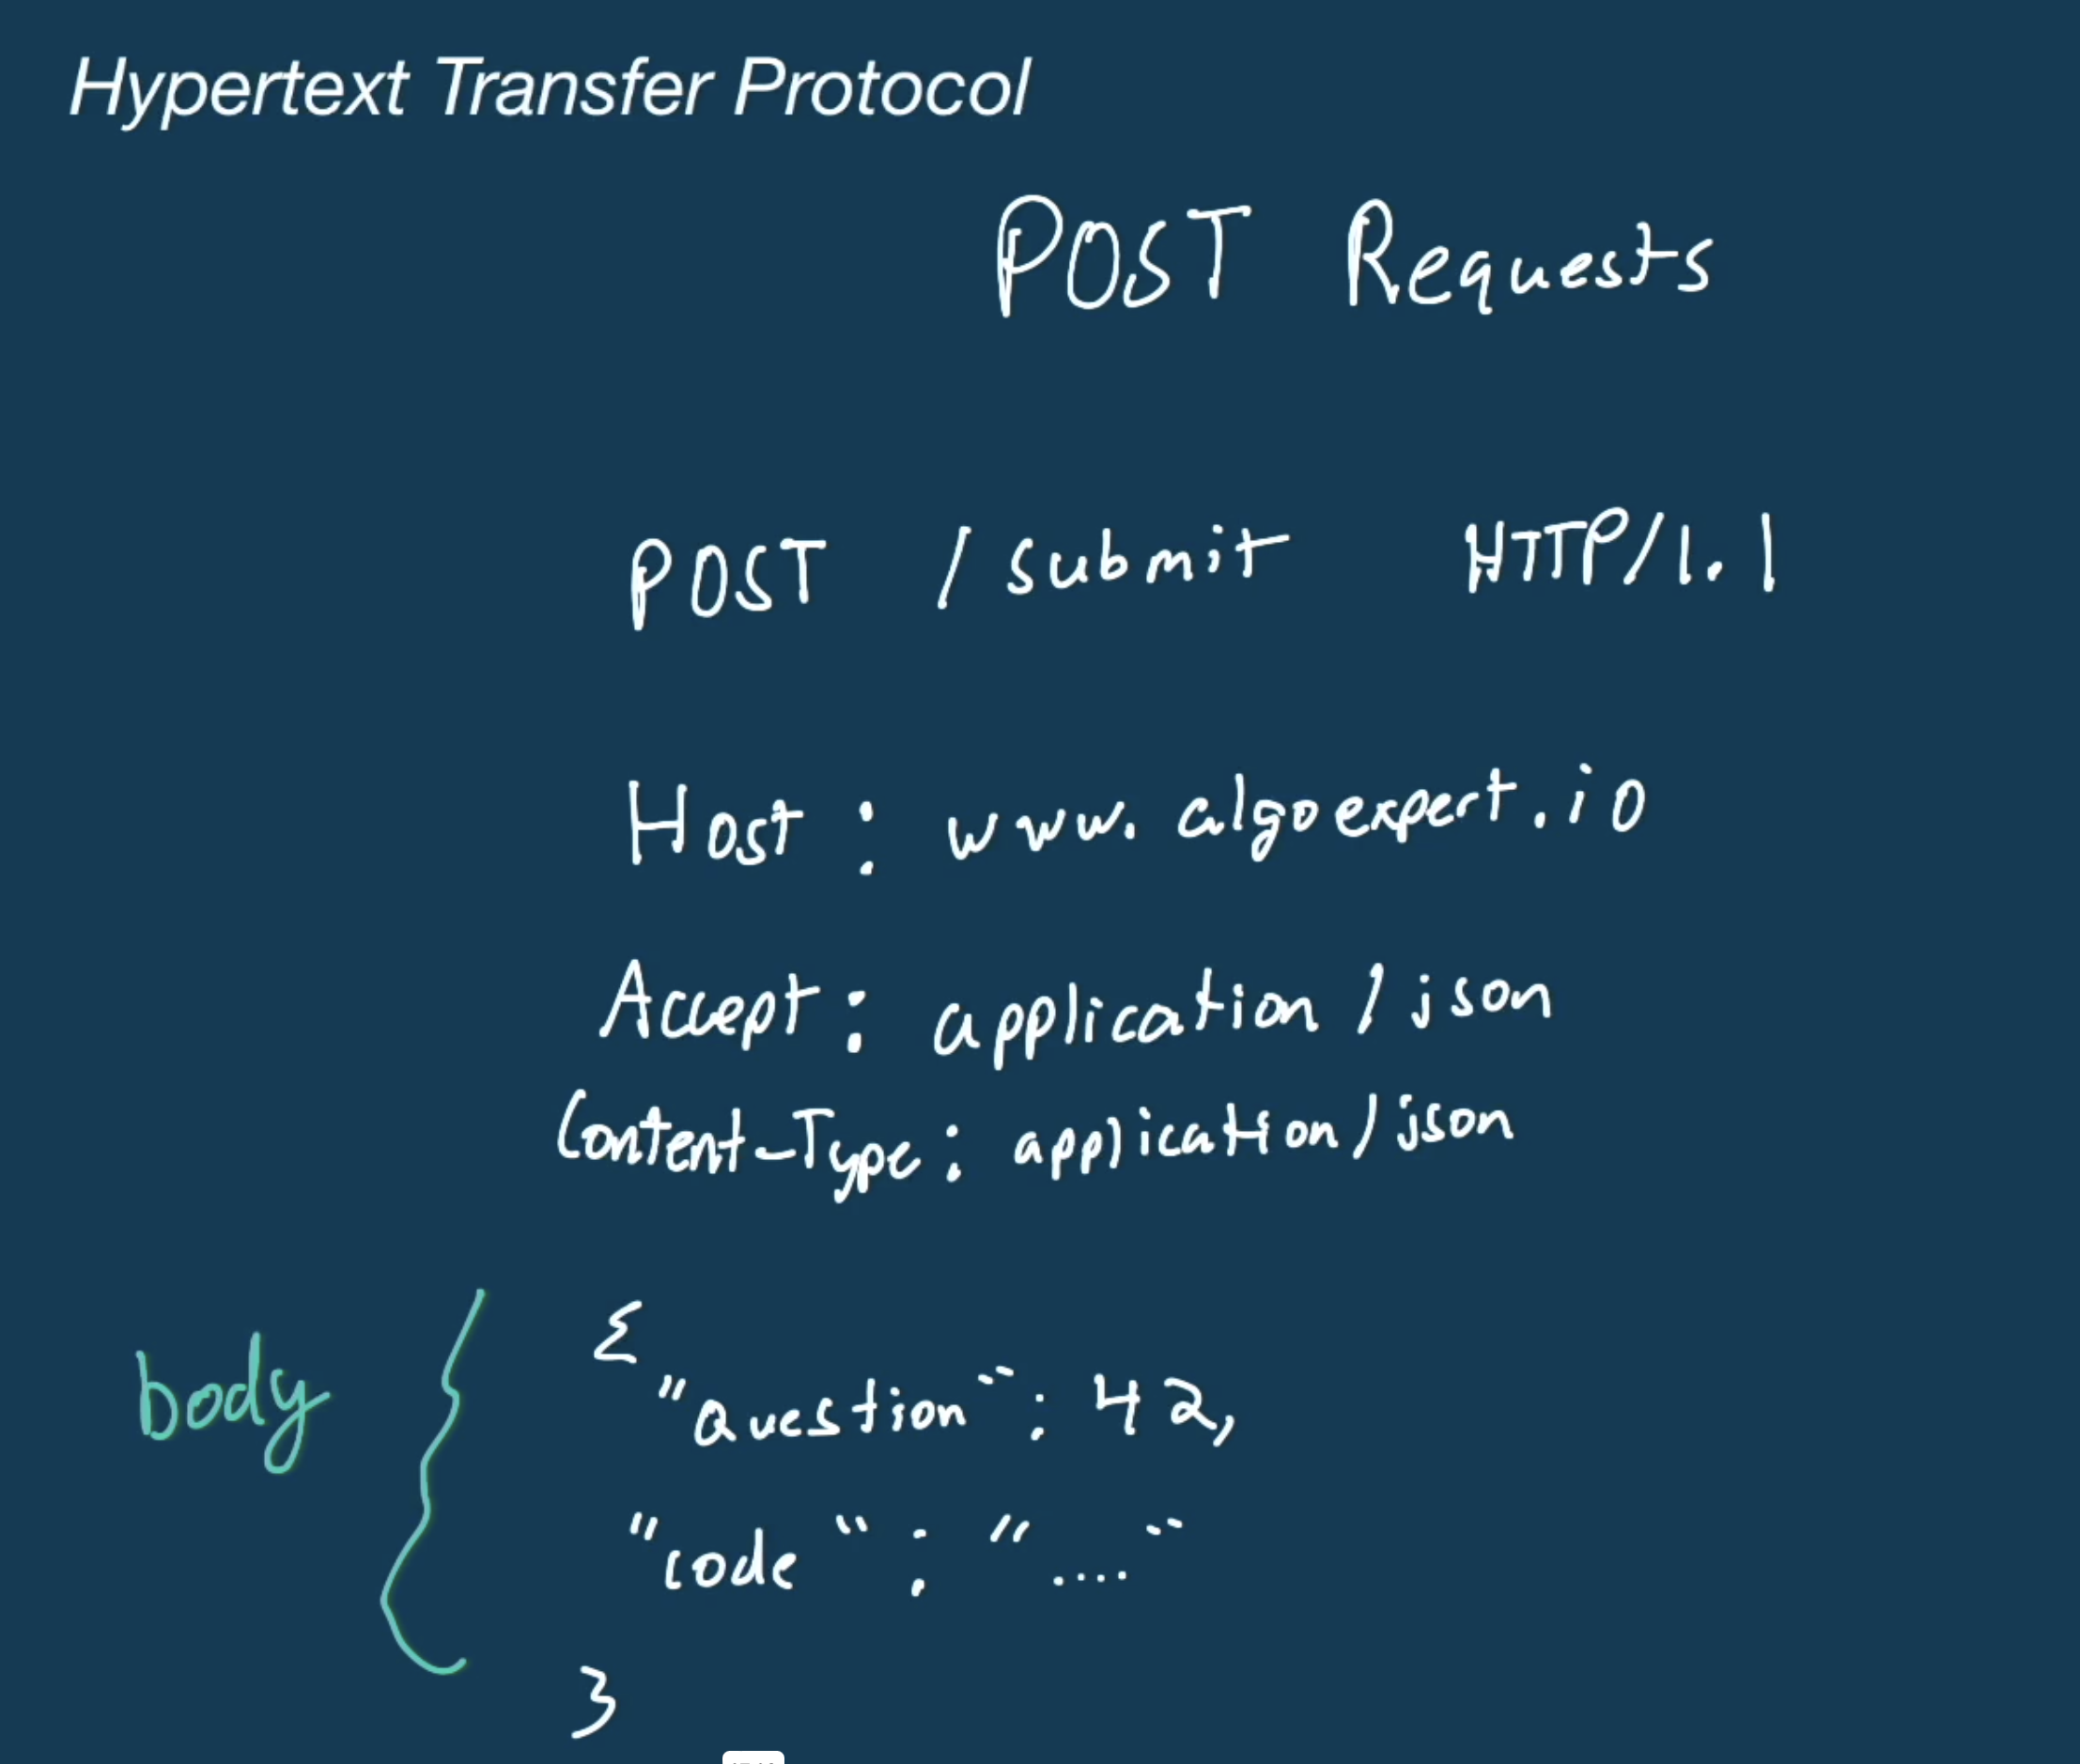 Hypertext Transfer Protocol
POST Requests
POST /submit HTTP/1.1
Host: www.algoexpert.io
Accept: application/json
Content-Type: application/json
body
{
"question": 42,
"code": "...."
}